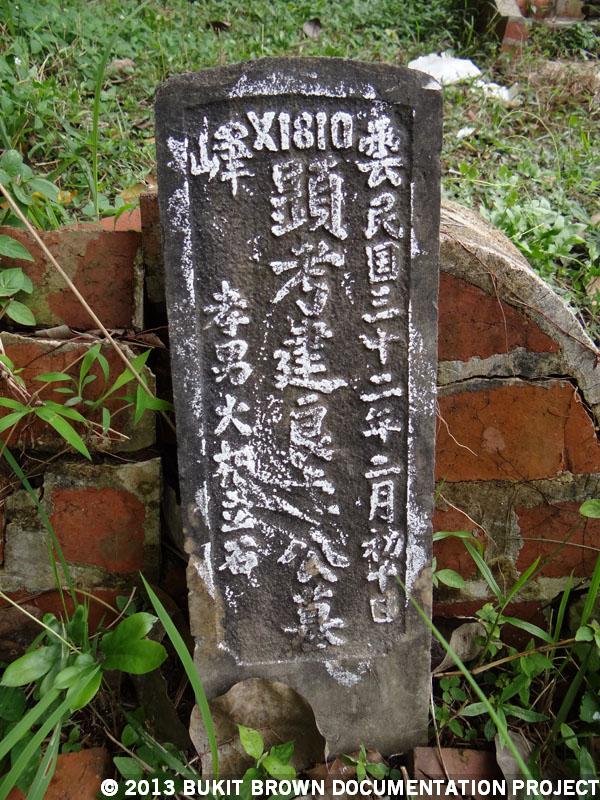 X1810
民国三十二年二月初十日
顕考建良公墓
孝男火立石
© 2013 BUKIT BROWN DOCUMENTATION PROJECT